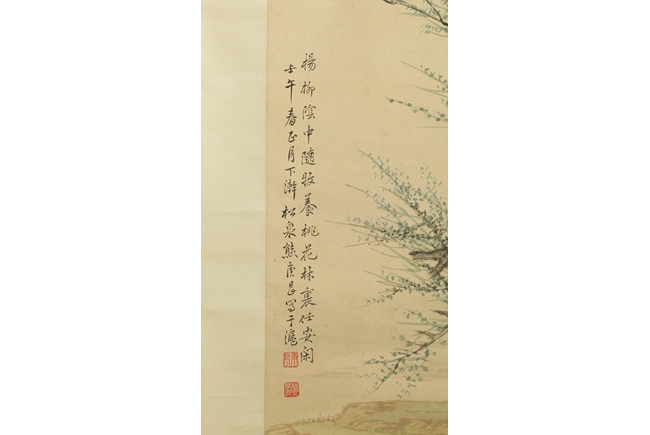 楊柳陰中隨牧養桃花林裏任安閑
壬午春正月下澣松泉熊庚昌寫于滬